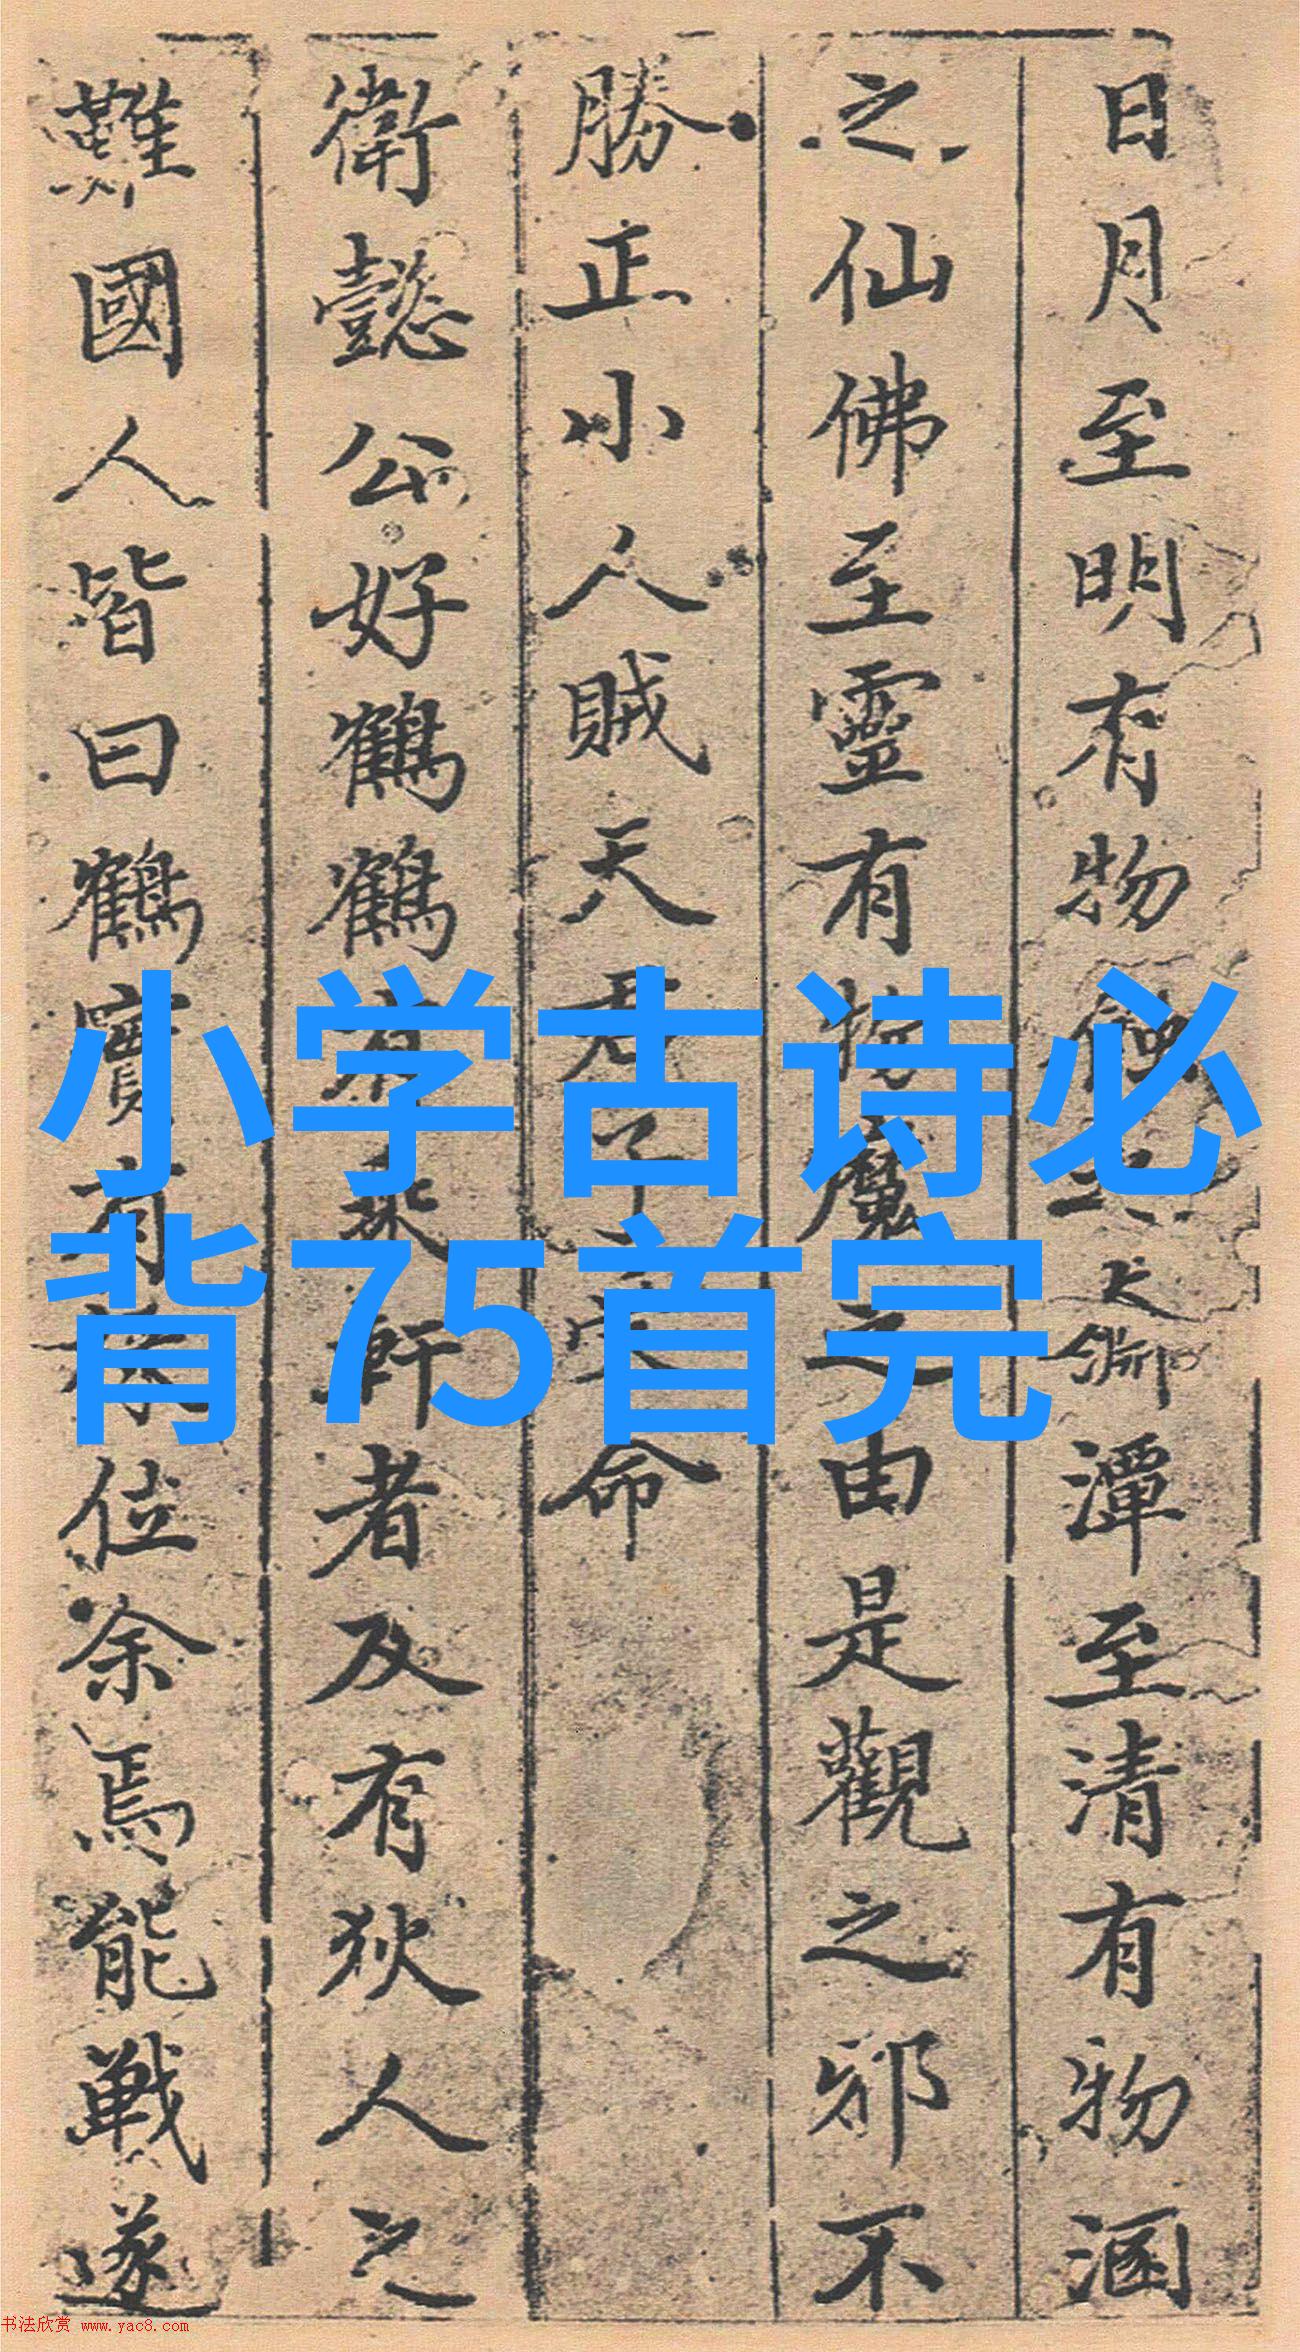 日月至明有物蝕之大淵潭至清有物涵
之仙佛至靈有物魔之由是觀之邪不
勝正小人賊天君子立命
衛懿公好鶴鶴有乘軒者及有狄人之
難國人皆曰鶴實有祿位余焉能戰遂
小学古诗必
背75首完
书法欣赏 www.yac8.com